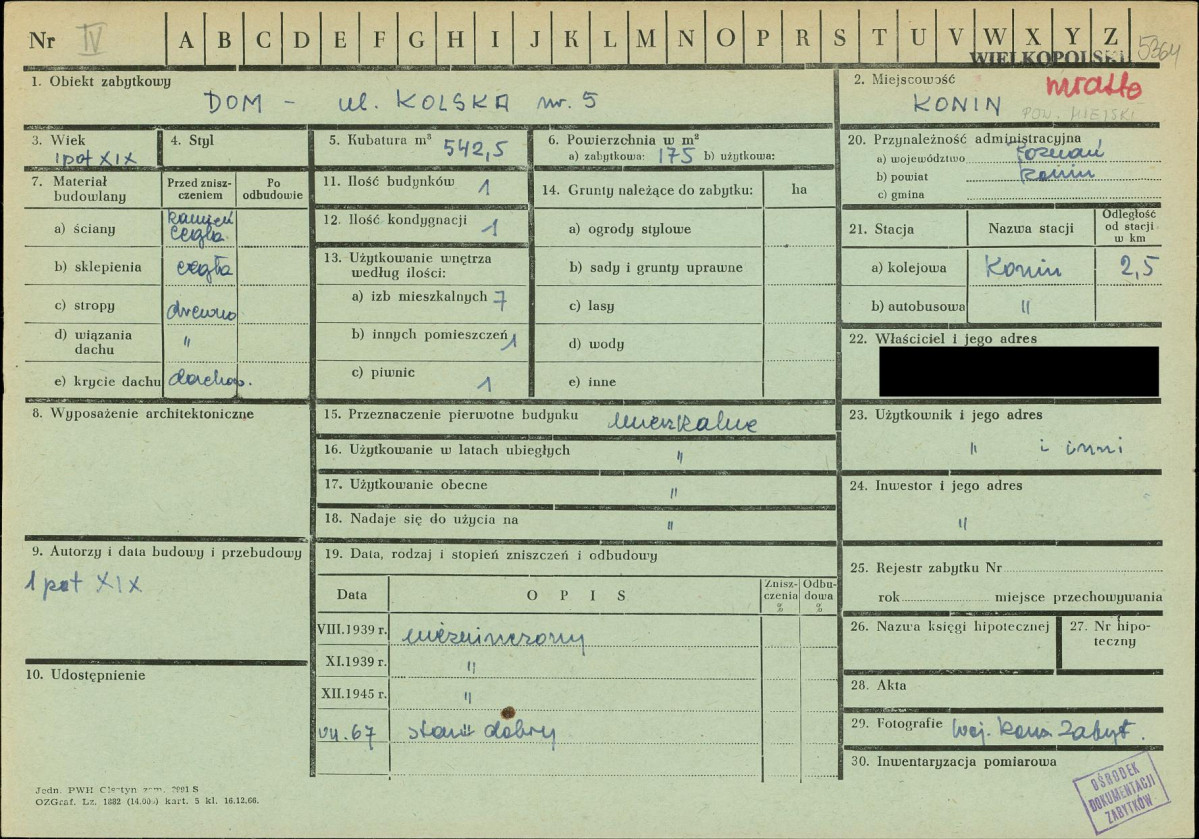 Nr IV A B C D E F G H I J K L M N O P R S T U V W X Y Z 5364
WIELKOPOLSKI
1. Obiekt zabytkowy
DOM - ul. KOLSKA nr. 5
2. Miejscowość
miasto
KONIN
POW. MIEJSKI
3. Wiek
1 poł XIX
4. Styl
5. Kubatura m³ 542,5
6. Powierzchnia w m²
a) zabytkowa: 175 b) użytkowa:
7. Materiał budowlany
Przed zniszczeniem
Po odbudowie
a) ściany kamień cegła
b) sklepienia cegła
c) stropy drewno
d) wiązania dachu "
e) krycie dachu dachów.
8. Wyposażenie architektoniczne
9. Autorzy i data budowy i przebudowy
1 poł XIX
10. Udostępnienie
11. Ilość budynków 1
12. Ilość kondygnacji 1
13. Użytkowanie wnętrza według ilości:
a) izb mieszkalnych 7
b) innych pomieszczeń 1
c) piwnic 1
14. Grunty należące do zabytku: ha
a) ogrody stylowe
b) sady i grunty uprawne
c) lasy
d) wody
e) inne
15. Przeznaczenie pierwotne budynku mieszkalne
16. Użytkowanie w latach ubiegłych "
17. Użytkowanie obecne "
18. Nadaje się do użycia na "
19. Data, rodzaj i stopień zniszczeń i odbudowy
Data OPIS Zniszczenia % Odbudowa %
VIII.1939 r. niezniszczony
XI.1939 r. "
XII.1945 r. "
VII.67 stan dobry
20. Przynależność administracyjna
a) województwo Poznań
b) powiat Konin
c) gmina
21. Stacja Nazwa stacji Odległość od stacji w km
a) kolejowa Konin 2,5
b) autobusowa "
22. Właściciel i jego adres
23. Użytkownik i jego adres
" i inni
24. Inwestor i jego adres
"
25. Rejestr zabytku Nr
rok miejsce przechowywania
26. Nazwa księgi hipotecznej
27. Nr hipoteczny
28. Akta
29. Fotografie Woj. Kons. Zabyt.
30. Inwentaryzacja pomiarowa
OŚRODEK
DOKUMENTACJI
ZABYTKÓW
Jedn. PWH Olsztyn zam. S
OZGraf. Lz. 1882 (14.000) kart. 5 kl. 16.12.66.